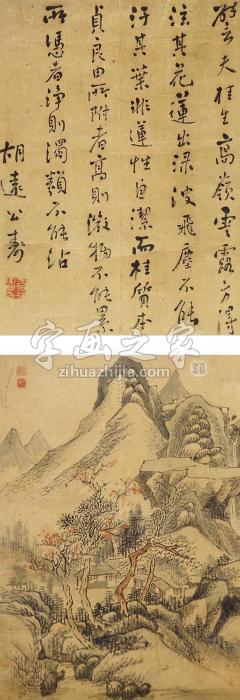 譬夫桂生高嶺雲露方得
泫其花蓮出淥波飛塵不能
汙其葉非蓮性自潔而桂質本
貞良由所附者高則微物不能累
所憑者淨則濁類不能沾
胡遠公壽
字画之家
zihuazhijia.com